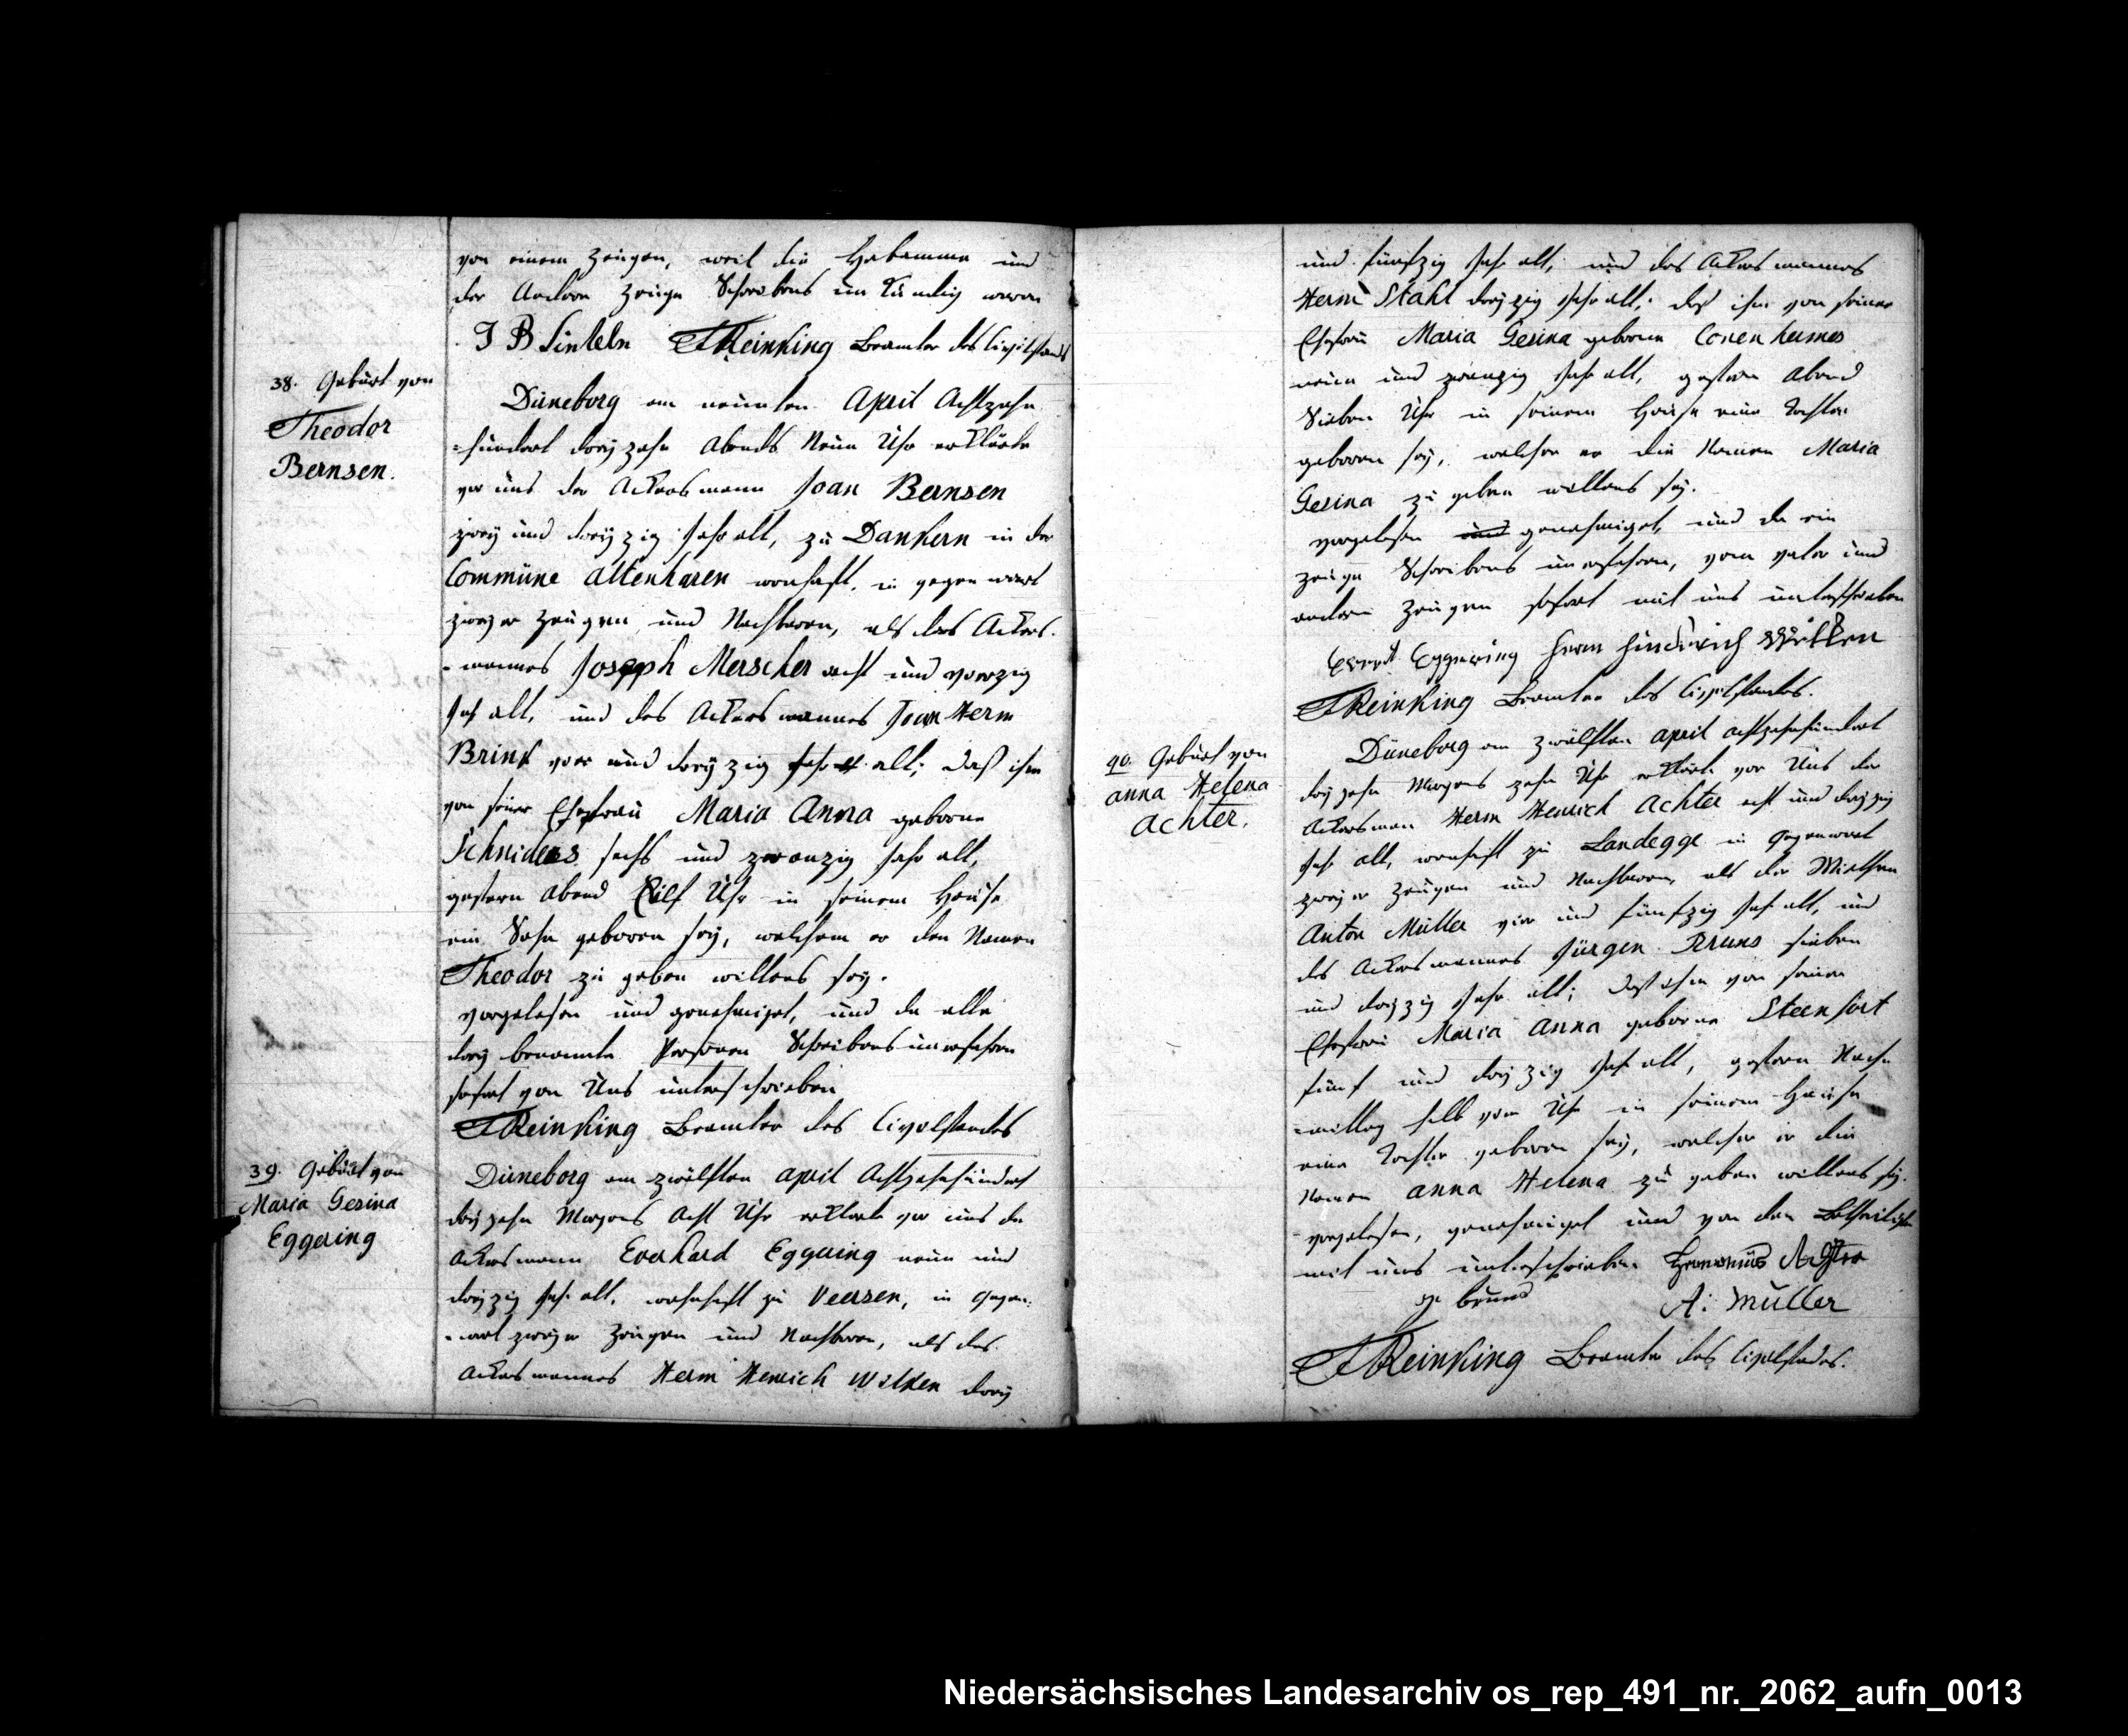 von einem Zeugen, weil die Hebamme und
der Andere Zeuge Schreibens unkundig waren
J B Sinkeln TReinking Beamter des Civilstands
38. Geburt von
Theodor
Bernsen.
Düneborg am neunten April Achtzehn
=hundert dreyzehn Abends Neun Uhr erklärte
vor uns der Ackersmann Joan Bernsen
zwey und dreyzig Jahr alt, zu Dankern in der
Commüne Altenharen wonhaft, in gegenwart
zweyer Zeugen und Nachbaren, als des Ackers-
-mannes Joseph Merscher acht und vierzig
Jahr alt, und des Ackersmannes Joan Herm
Brink vier und dreyzig Jahr alt; daß ihm
von seiner Ehefrau Maria Anna geborne
Schniders sechs und zwanzig Jahr alt,
gestern Abend Eilf Uhr in seinem Hause
ein Sohn geboren sey, welchem er den Namen
Theodor zu geben willens sey.
vorgelesen und genehmiget, und da alle
drey benannte Personen Schreibens unerfahren
sofort von Uns unterschrieben
TReinking Beamter des Civilstandes
39. Geburt von
Maria Gesina
Eggering
Düneborg am zwölften April Achtzehnhundert
dreyzehn Morgens Acht Uhr erklärte vor uns der
Ackersmann Everhard Eggering neun und
dreyzig Jahr alt, wohnhaft zu Veersen, in Gegen-
-wart zweyer Zeugen und Nachbaren, als des
Ackersmannes Herm Henrich Wilken drey
und fünfzig Jahr alt, und des Ackersmannes
Herm Stahl dreyzig Jahr alt; daß ihm von seiner
Ehefrau Maria Gesina geborne Conen hermes
neun und zwanzig Jahr alt, gestern Abend
Sieben Uhr in seinem Hause eine Tochter
geboren sey, welcher er die Namen Maria
Gesina zu geben willens sey.
vorgelesen und genehmiget, und da ein
Zeuge Schreibens unerfahren, vom Vater und
andern Zeugen sofort mit uns unterschrieben
Evert Eggering Herm Hindrich Wilken
TReinking Beamter des Civilstandes.
40. Geburt von
Anna Helena
Achter.
Düneborg am zwölften April achtzehnhundert
dreyzehn Morgens zehn Uhr erklärte vor Uns der
Ackersman Herm Henrich Achter acht und dreyzig
Jahr alt, wonhaft zu Landegge in Gegenwart
zweyer Zeugen und Nachbaren, als des
Anton Müller vier und fünfzig Jahr alt, und
des Ackersmannes Jürgen Bruns sieben
und dreyzig Jahr alt; daß ihm von seiner
Ehefrau Maria Anna geborne Steenfort
fünf und dreyzig Jahr alt, gestern Nach-
=mittag halb vier Uhr in seinem Hause
eine Tochter geboren sey, welcher er die
Namen Anna Helena zu geben willens sey.
vorgelesen, genehmiget und von den Betheiligten
mit uns unterschrieben Hermanüs Achter
J. bruns A: Müller
TReinking Beamter des Civilstandes.
Niedersächsisches Landesarchiv os_rep_491_nr._2062_aufn_0013